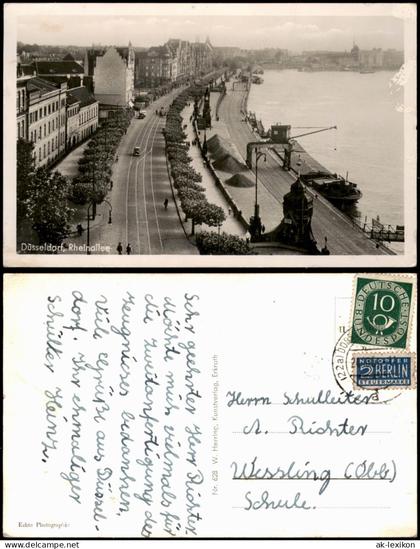 Düsseldorf, Rheinallee
Sehr geehrter Herr Richter,
möchte mich vielmals für
die Zweitanfertigung des
Zeugnisses bedanken.
Viele Grüße aus Düssel-
dorf. Ihr ehemaliger
Schüler Heinz.
Nr. 628 W. Herring, Kunstverlag, Erkrath
Echte Photographie
DEUTSCHE
BUNDESPOST
10
NOTOPFER
2 BERLIN
STEUERMARKE
(22a) DÜSS
Herrn Schulleiter
A. Richter
Wessling (Obb)
Schule.
www.ak-ansichtskarten.de
ak-lexikon